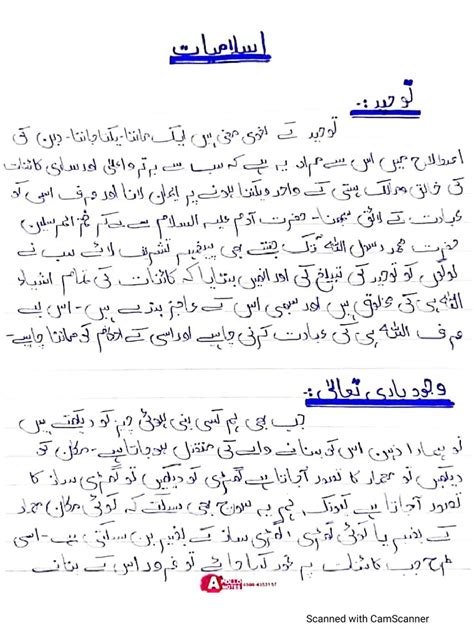 اسلامیات
توحید:-
توحید کے لغوی معنی ہیں ایک ماننا۔ یکتا جاننا۔ دین کی
اصطلاح میں اس سے مراد یہ ہے کہ سب سے برتر و اعلیٰ اور ساری کائنات
کی خالق و مالک ہستی کے واحد و یکتا ہونے پر ایمان لانا اور صرف اسی کو
عبادت کے لائق سمجھنا۔ حضرت آدم علیہ السلام سے لے کر ختم المرسلین
حضرت محمد رسول اللہ ﷺ تک جتنے بھی پیغمبر تشریف لائے سب نے
لوگوں کو توحید کی تبلیغ کی اور انہیں بتایا کہ کائنات کی تمام اشیاء
اللہ ہی کی مخلوق ہیں اور سبھی اس کے عاجز بندے ہیں۔ اس لیے
صرف اللہ ہی کی عبادت کرنی چاہیے اور اسی کے احکام کو ماننا چاہیے۔
وجود باری تعالیٰ:-
جب بھی ہم کسی بنی ہوئی چیز کو دیکھتے ہیں
تو ہمارا ذہن اس کو بنانے والے کی منتقل ہو جاتا ہے۔ مکان کو
دیکھیں تو معمار کا تصور آ جاتا ہے گھڑی کو دیکھیں تو گھڑی ساز کا
تصور آ جاتا ہے کیونکہ ہم یہ سوچ بھی نہیں سکتے کہ کوئی مکان معمار
کے بغیر یا کوئی گھڑی، گھڑی ساز کے بغیر بن سکتی ہے۔ اسی
طرح جب کائنات پر غور کیا جائے تو ضرور اس کے بنانے
APOLLO NOTES
Scanned with CamScanner